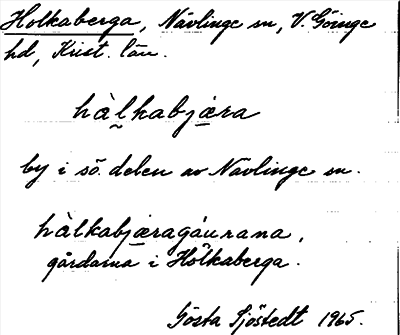 Holkaberga, Nävlinge sn, V. Göinge
hd, Krist. län.
hàlkabjæra
by i sö. delen av Nävlinge sn.
hàlkabjæragáurana,
gårdarna i Hölkaberga.
Gösta Sjöstedt 1965.